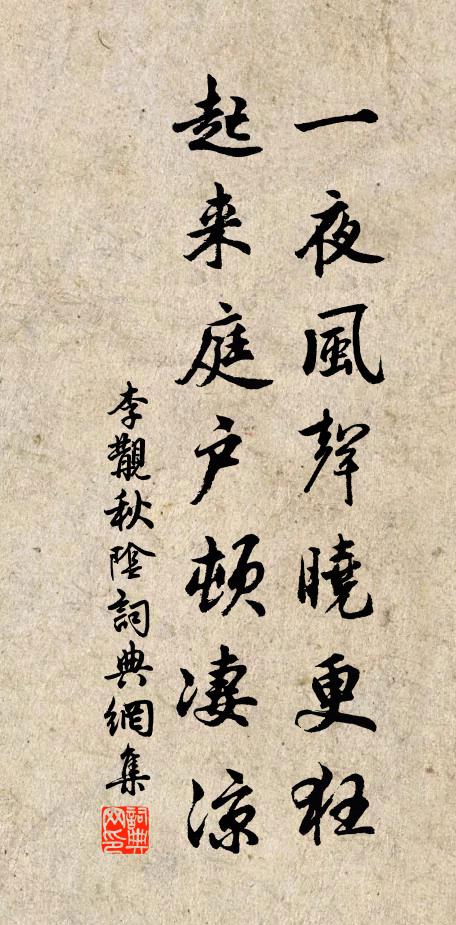 一夜風聲曉更狂
起来庭户頓凄涼
李觀秋陰詞典網集
詞典网印